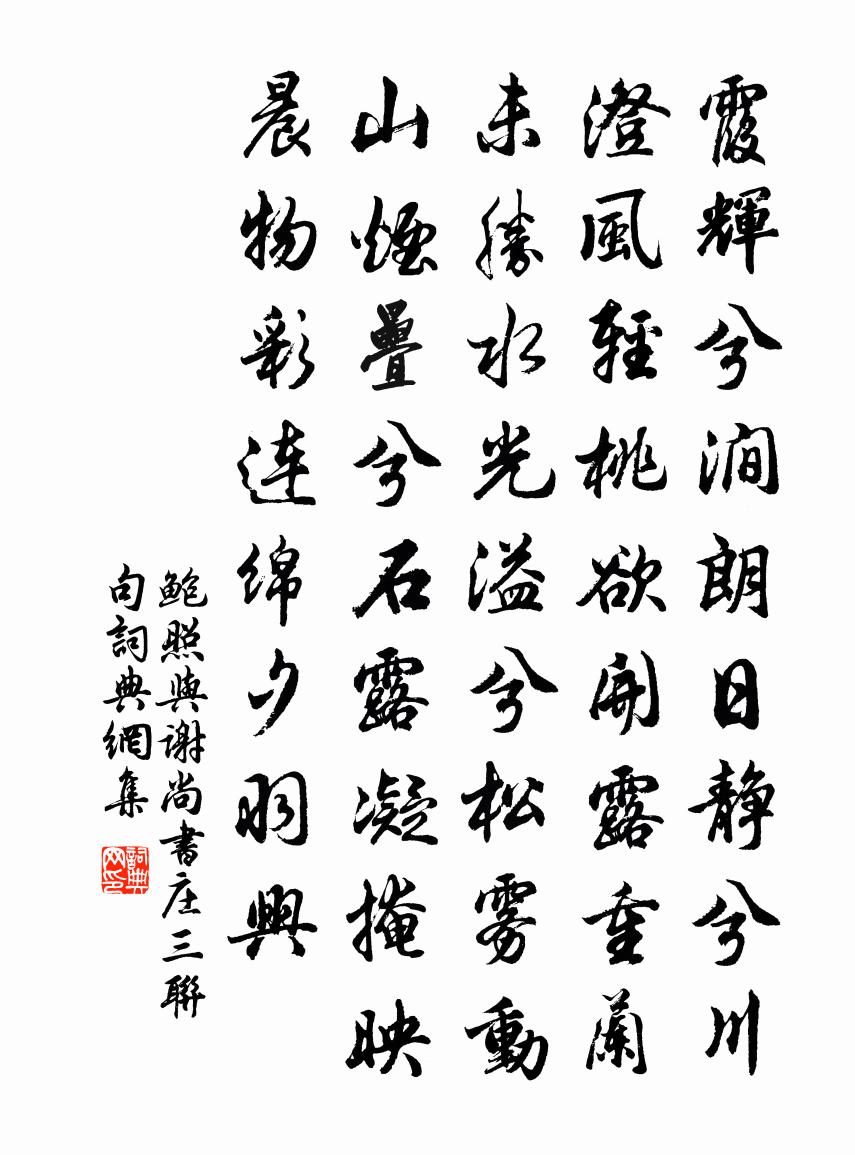 霞輝兮澗朗日静兮川
澄風輕桃欲開露重蘭
未勝水光溢兮松雾動
山煙疊兮石露凝掩映
晨物彩連绵夕羽興
鲍照與谢尚書庄三聯
句詞典網集
詞典网印